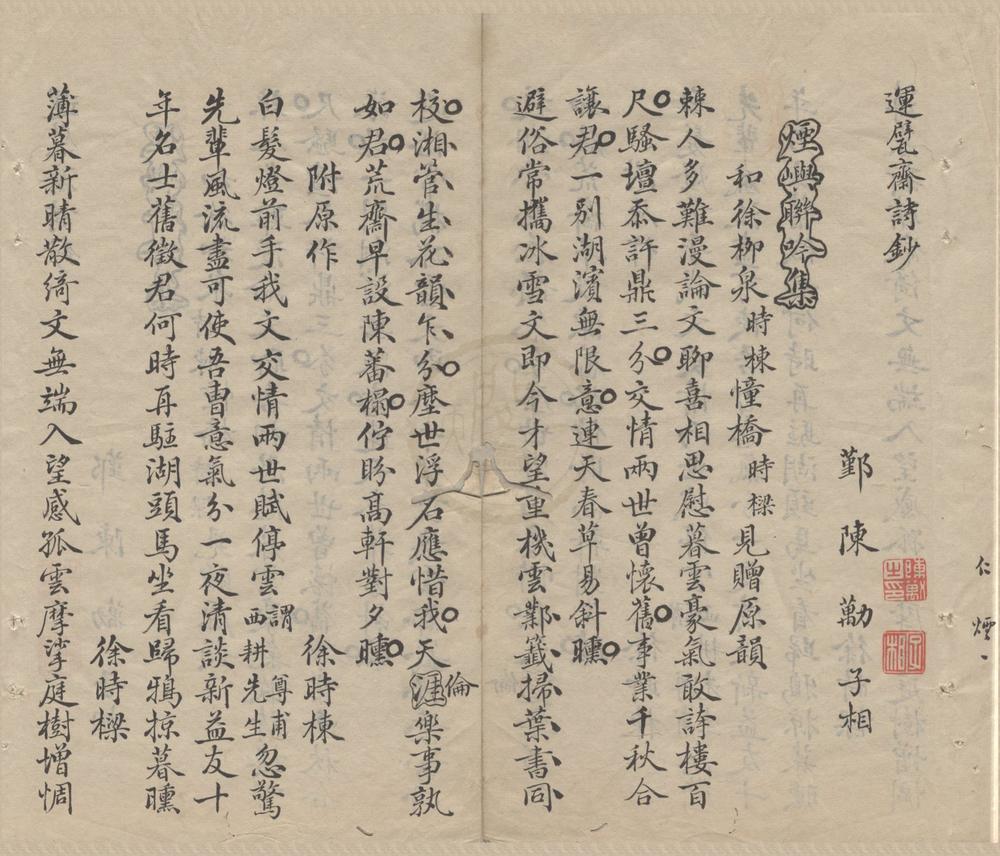 仁
煙
運甓齋詩鈔
鄞陳勱子相
陳勱之印
子相
煙嶼聯吟集
和徐柳泉時棟憧橋時樑見贈原韻
棘人多難漫論文聊喜相思慰暮雲豪氣敢誇樓百
尺騷壇忝許鼎三分交情兩世曾懷舊事業千秋合
讓君一別湖濱無限意連天春草易斜曛
避俗常攜冰雪文即今才望重機雲鄴籤掃葉書同
校湘管生花韻乍分塵世浮石應惜我天涯倫樂事孰
如君荒齋早設陳蕃榻佇盼高軒對夕曛
附原作
徐時棟
白髮燈前手我文交情兩世賦停雲謂尊甫西耕先生忽驚
先輩風流盡可使吾曹意氣分一夜清談新益友十
年名士舊徵君何時再駐湖頭馬坐看歸鴉掠暮曛
徐時樑
薄暮新晴散綺文無端入望感孤雲摩挲庭樹增惆